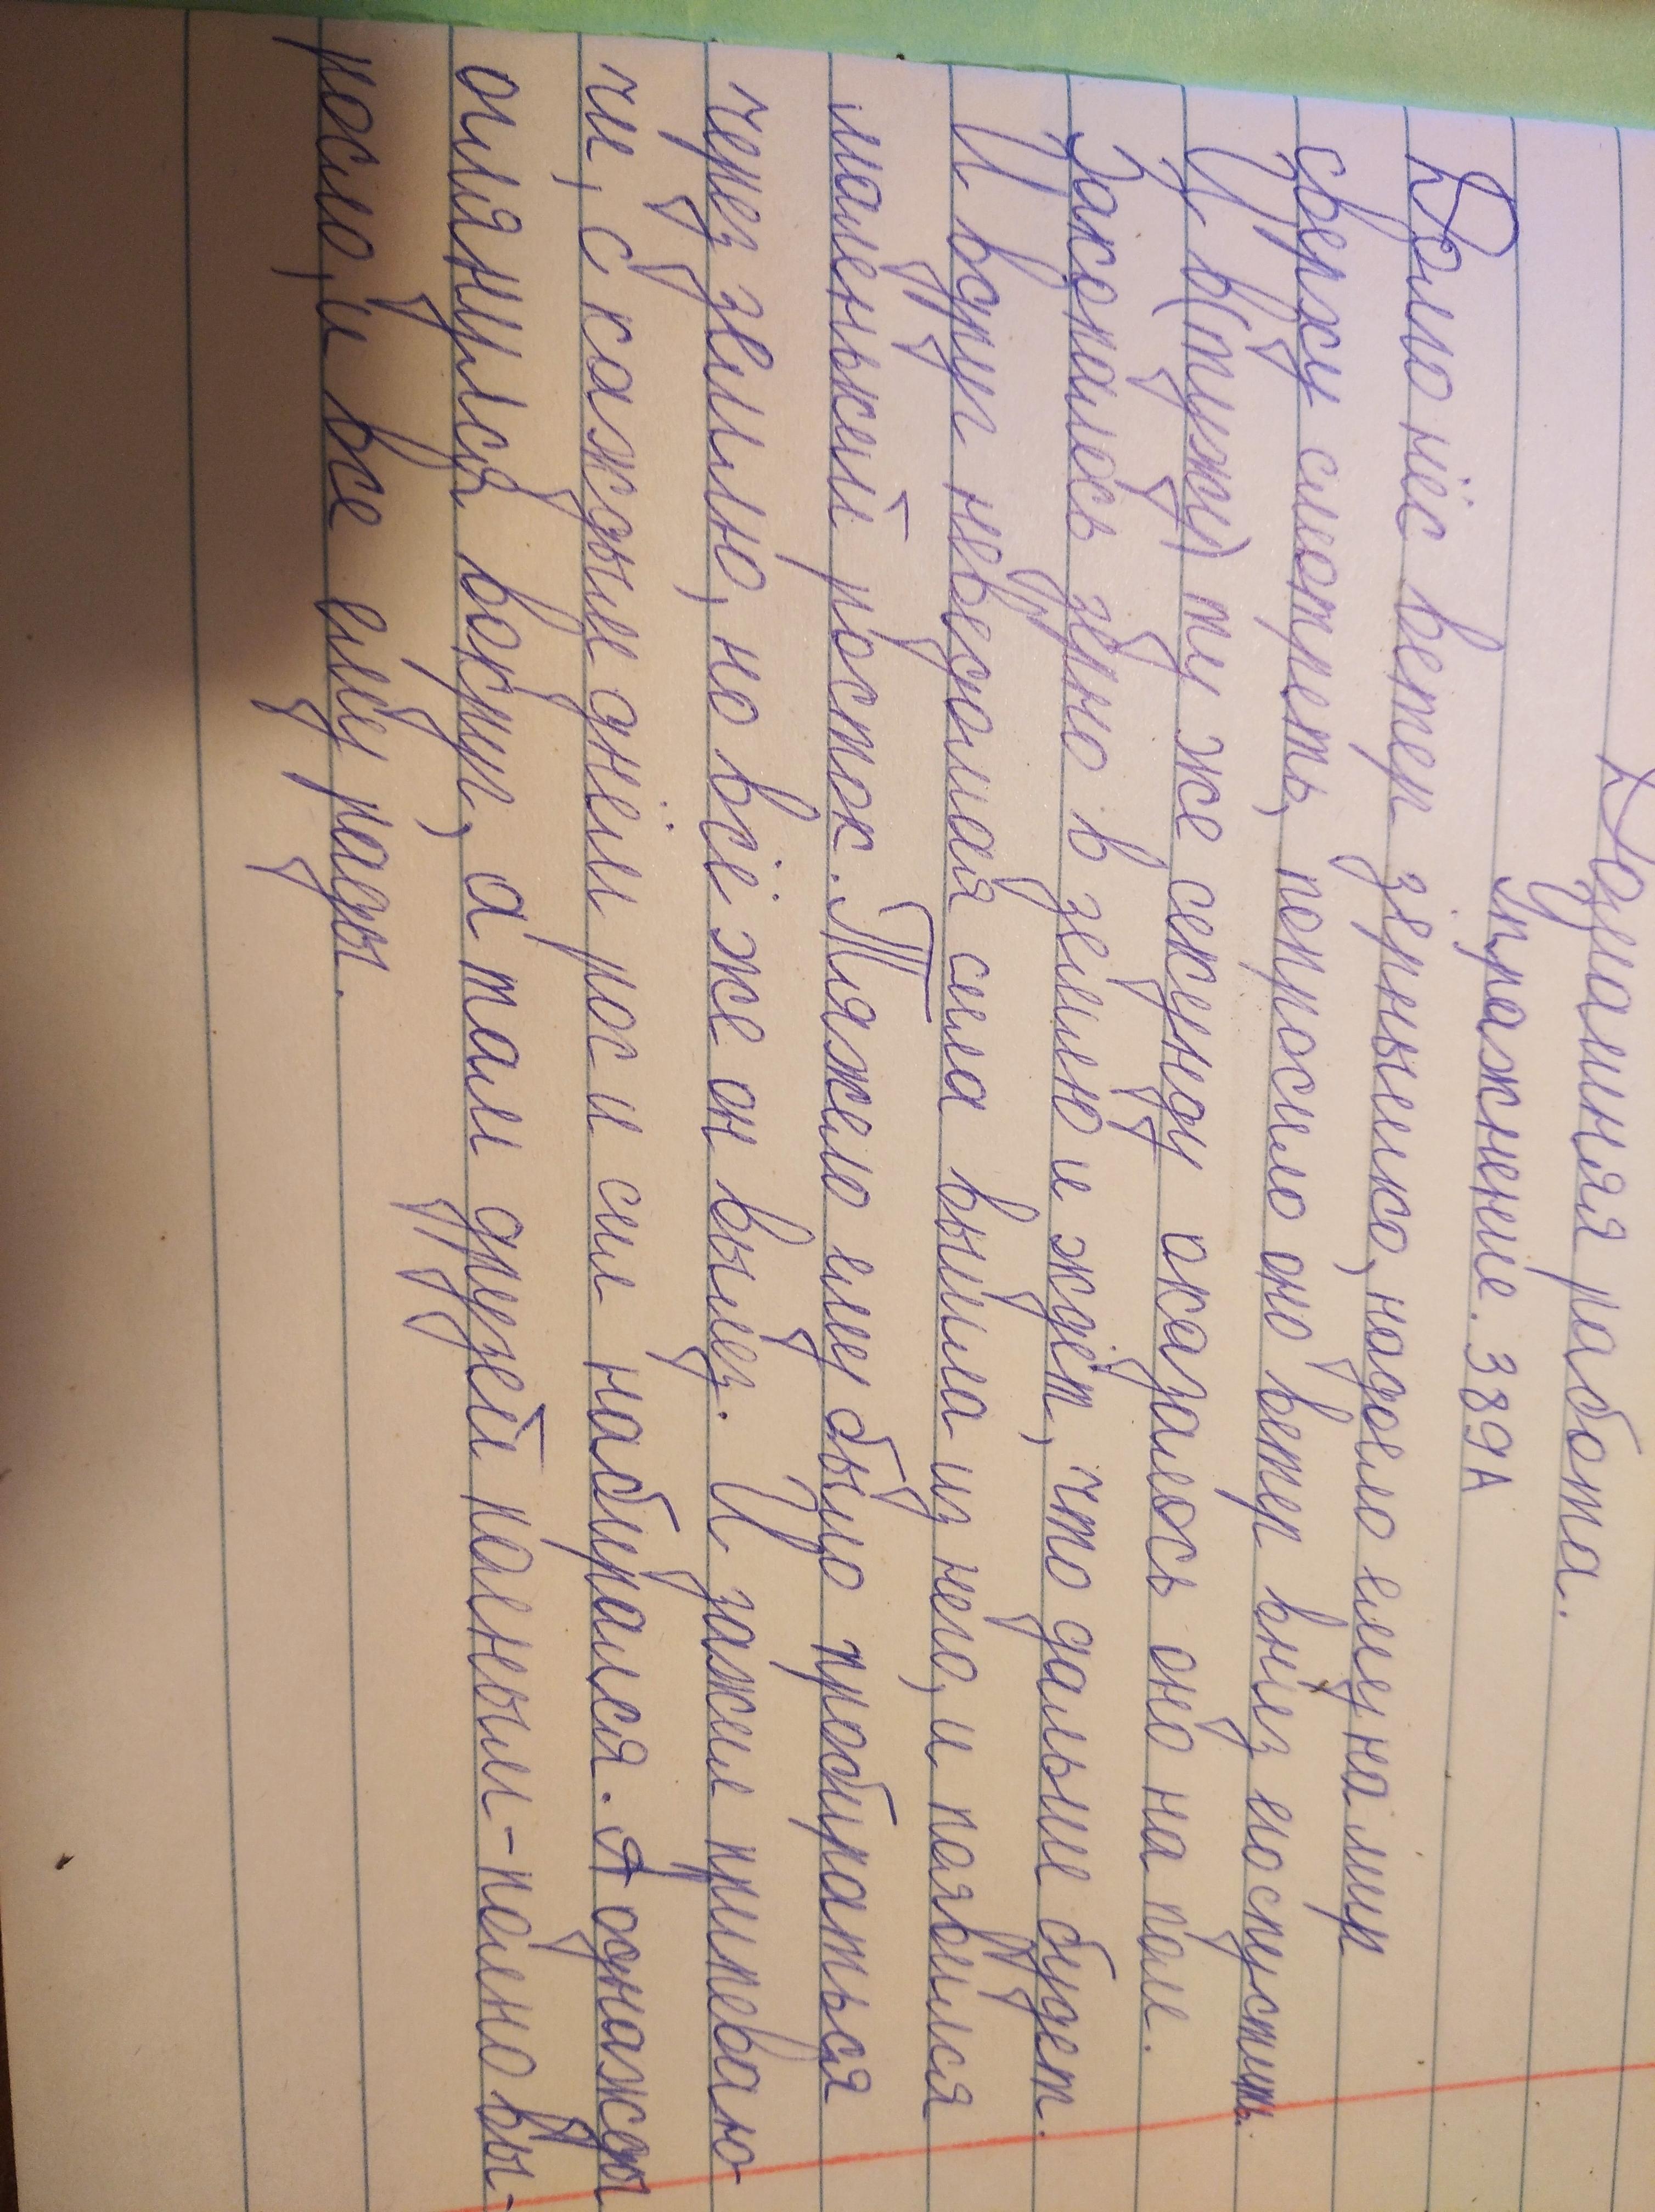 Домашняя работа.
Упражнение. 389А
Долго нёс ветер зёрнышко, надоело ему на мир
сверху смотреть, попросило оно ветер вниз его спустить.
И в(ту(жу) ту же секунду оказалось оно на поле.
Закопалось зерно в землю и ждёт, что дальше будет.
И вдруг неведомая сила вышла из него, и появился
маленький росток. Тяжело ему было пробираться
через землю, но всё же он вылез. И зажил припеваю-
чи, с каждым днём рос и сил набирался. А однажды
оглянулся вокруг, а там друзей полным-полно вы-
росло, и все ему рады.